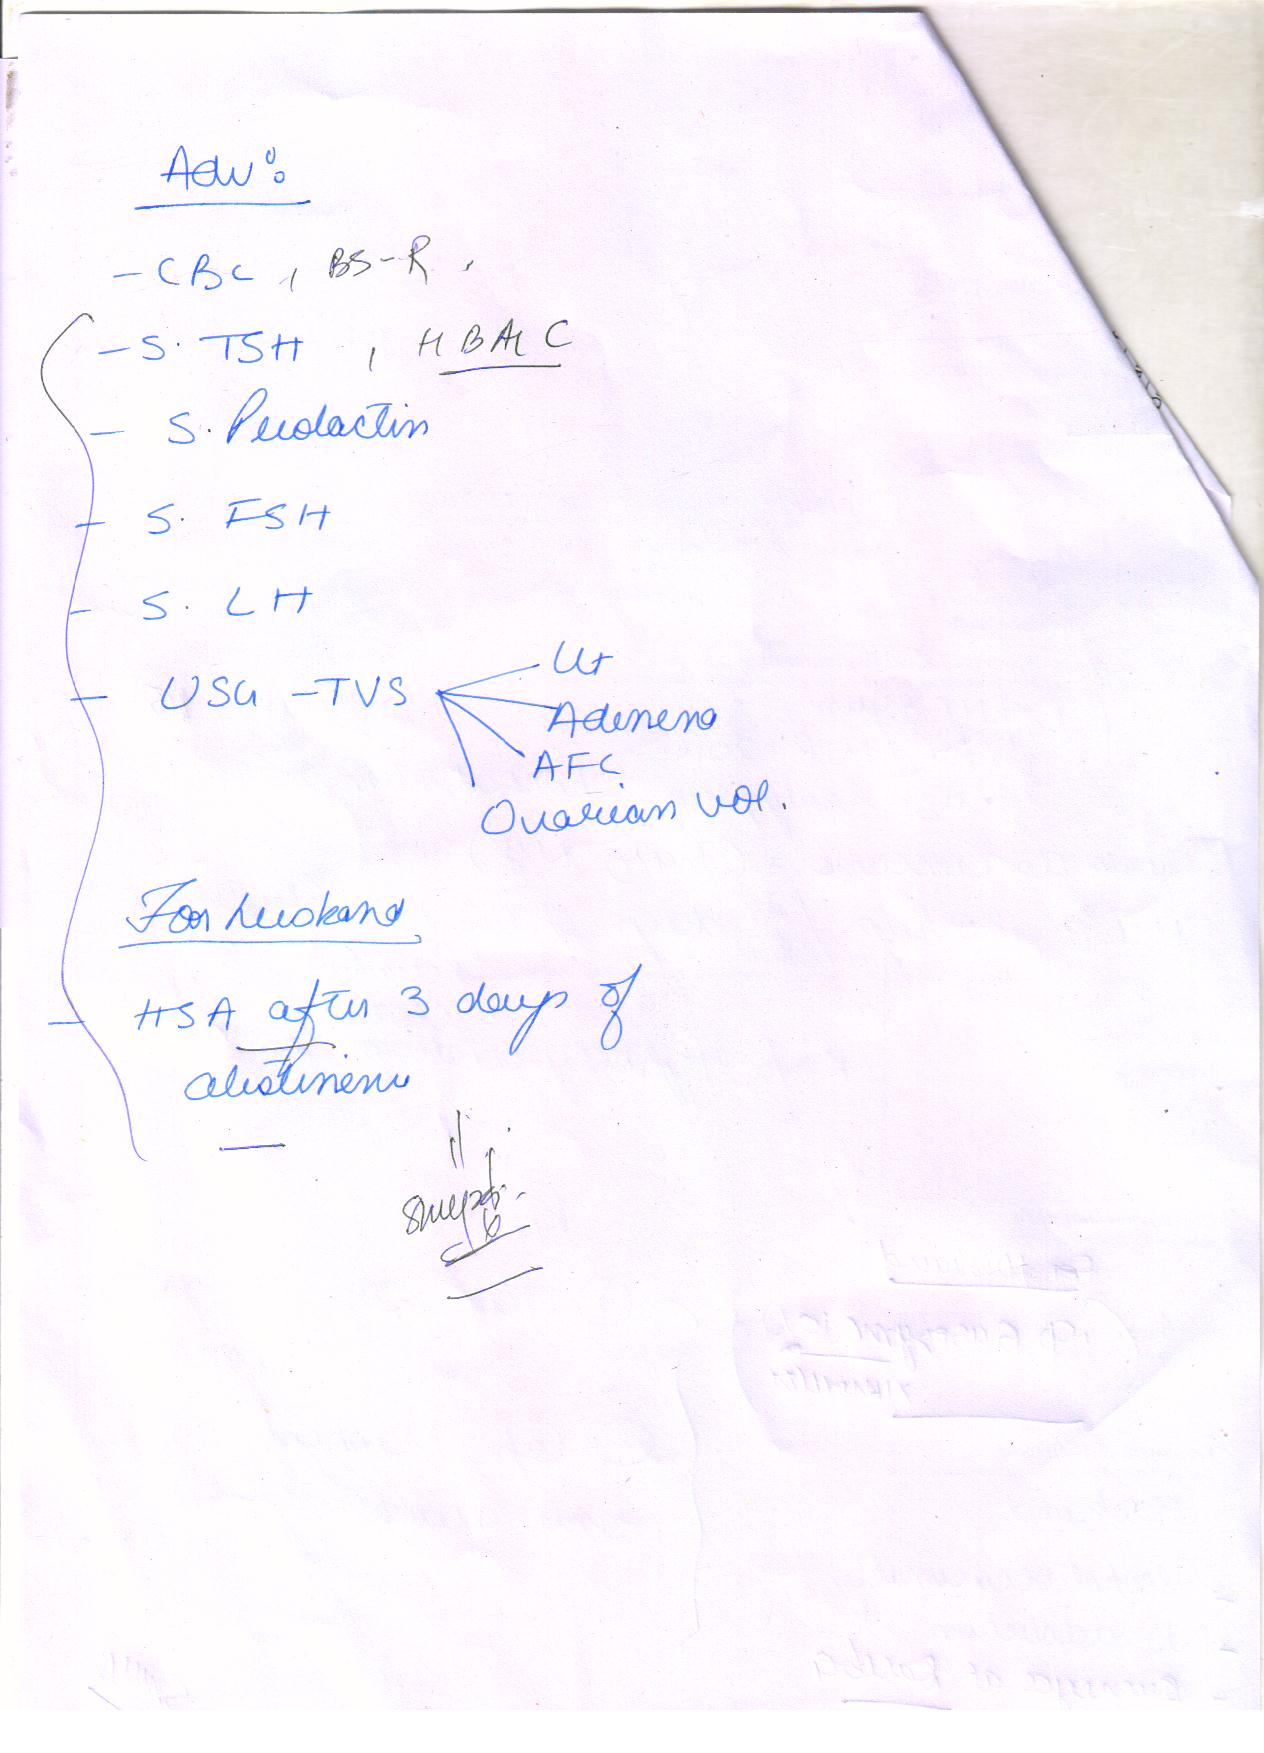 Adv:
- CBC, BS-R,
- S. TSH, HBA1C
- S. Prolactin
- S. FSH
- S. LH
- USG - TVS
Ut
Adenena
AFC
Ovarian vol.
For husband
- HSA after 3 days of
abstinence